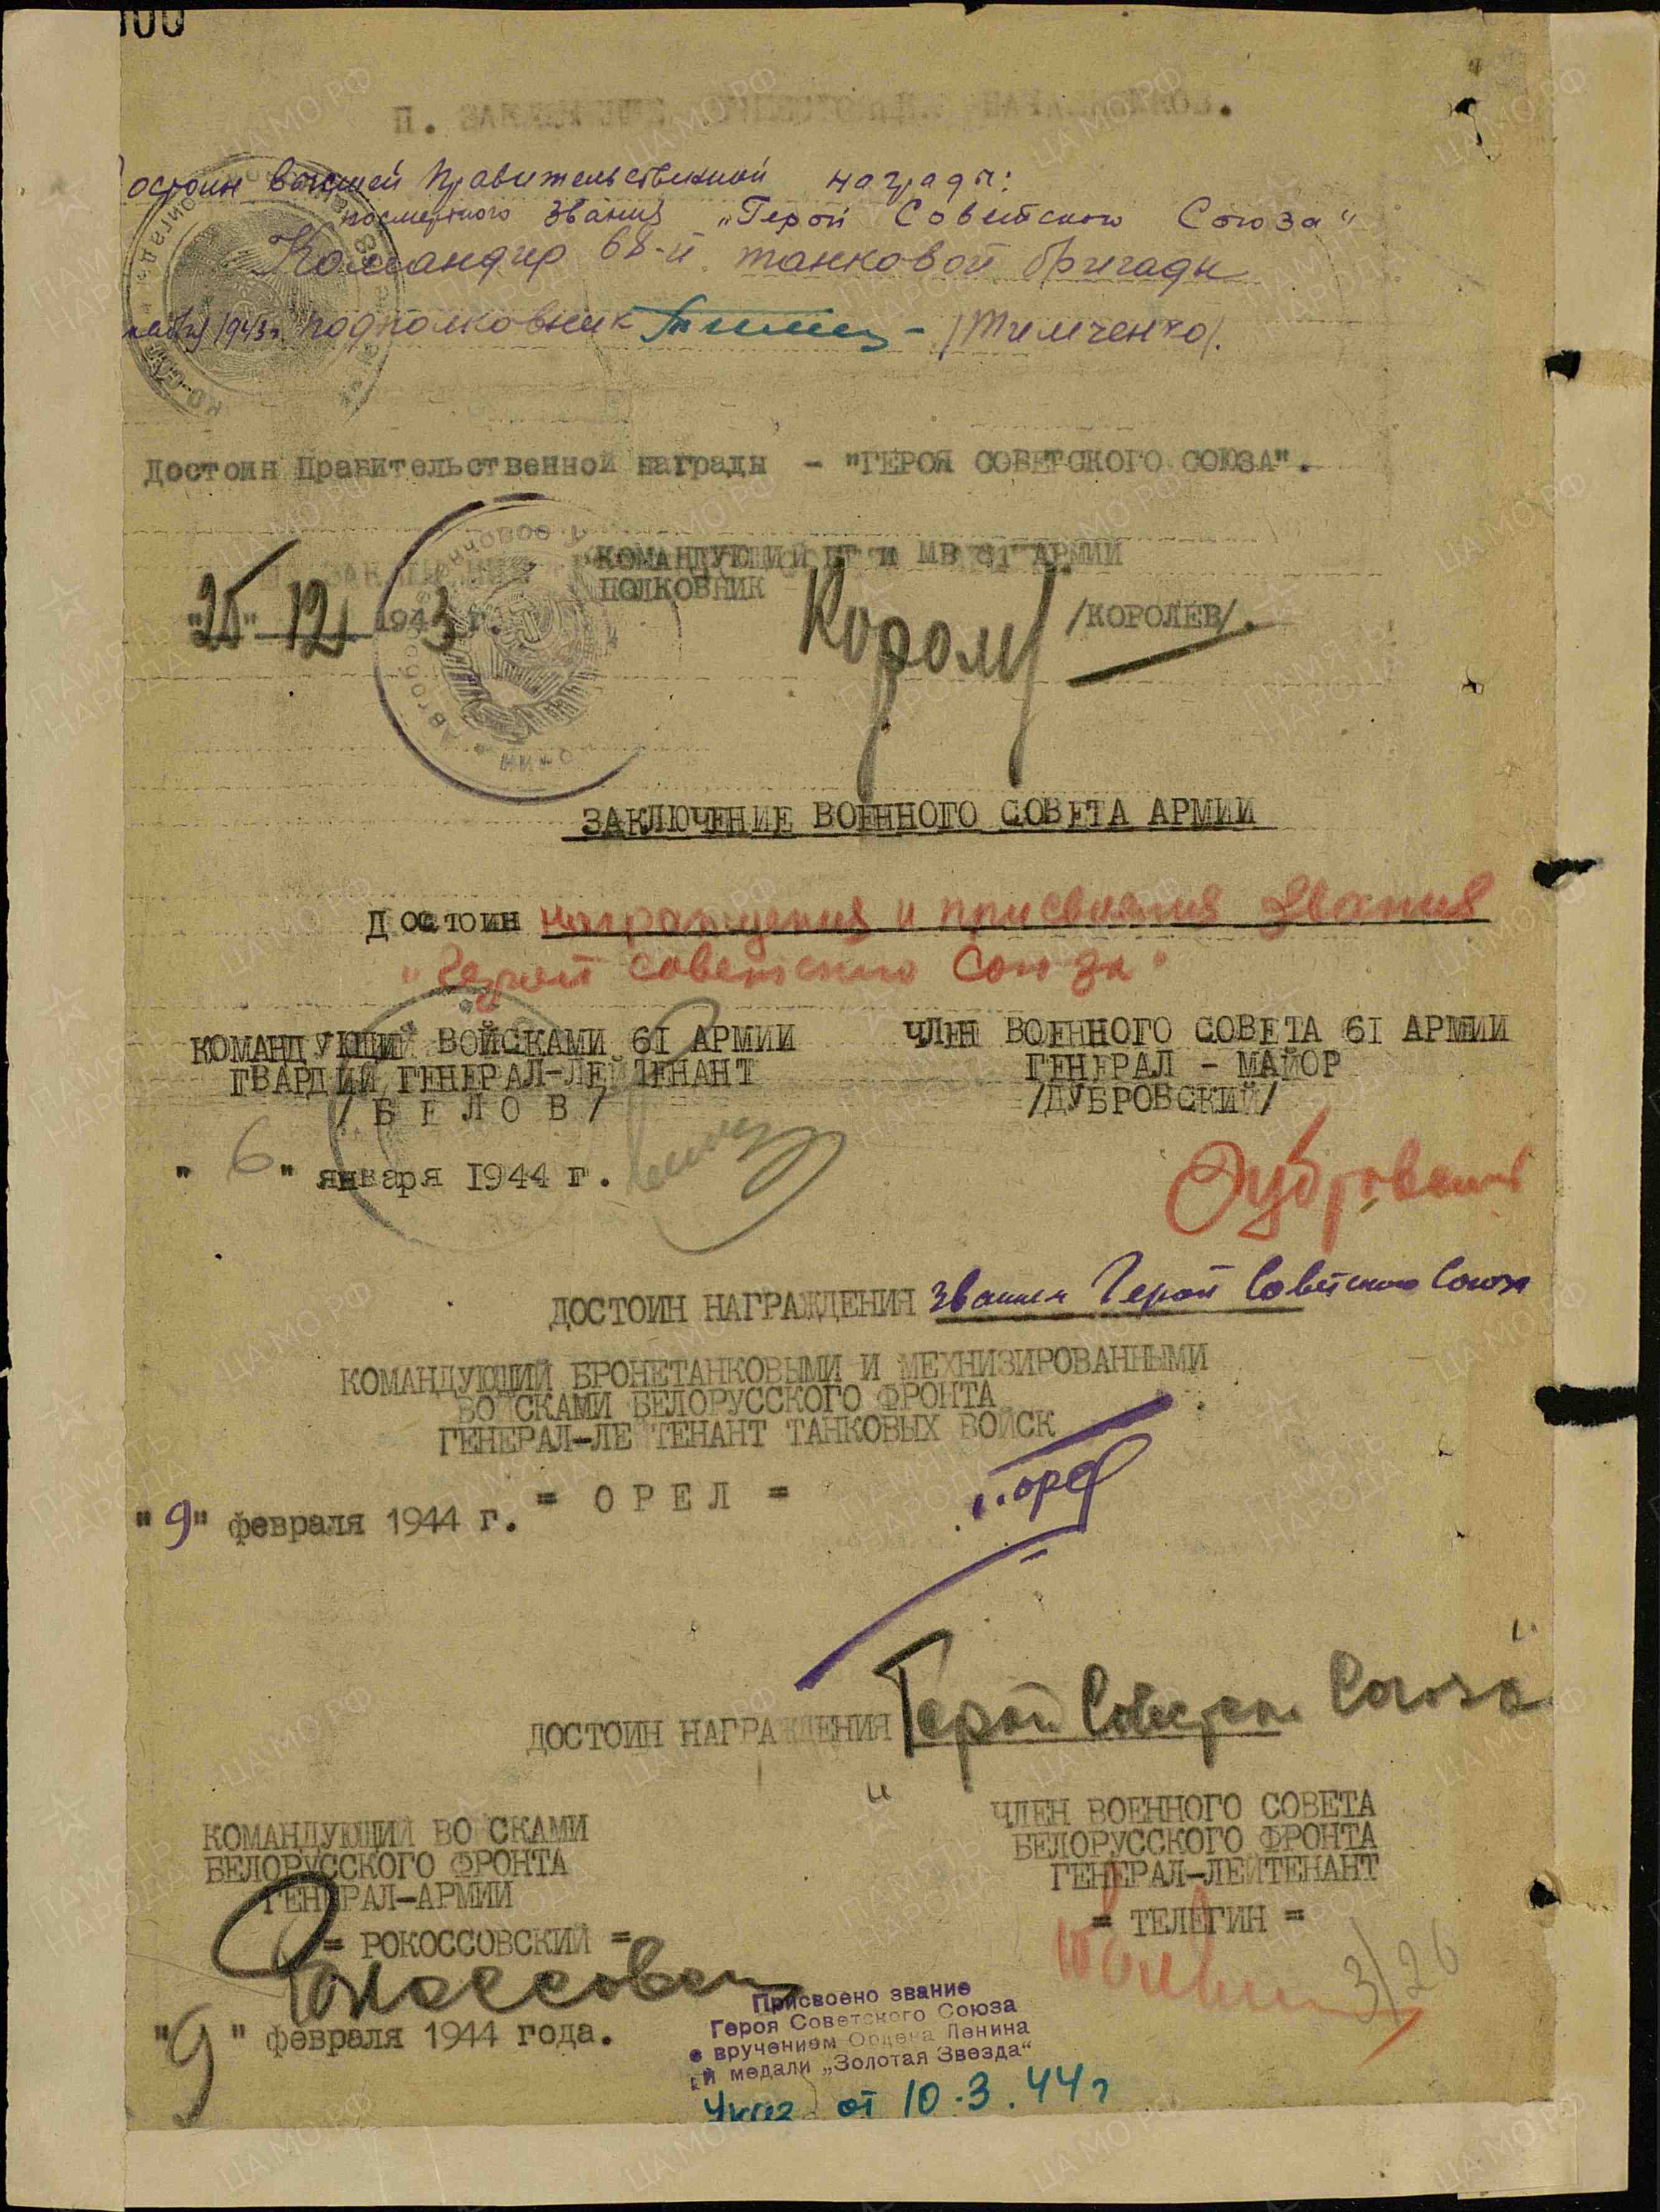 П. ЗАКЛЮЧЕНИЕ НАЧАЛЬНИКОВ.
остоин высшей Правительственной награды:
посмертного звания „Герой Советского Союза“
Командир 68-й танковой бригады
1943г. подполковник /Тимченко/.
Достоин Правительственной награды - "ГЕРОЯ СОВЕТСКОГО СОЮЗА".
КОМАНДУЮЩИЙ БТ и МВ 61 АРМИИ
ПОЛКОВНИК
"25" 12 1943 г.
/КОРОЛЕВ/.
ЗАКЛЮЧЕНИЕ ВОЕННОГО СОВЕТА АРМИИ
Достоин награждения и присвоения звания
"Герой Советского Союза"
КОМАНДУЮЩИЙ ВОЙСКАМИ 61 АРМИИ
ГВАРДИИ ГЕНЕРАЛ-ЛЕЙТЕНАНТ
/БЕЛОВ/
"6" января 1944 г.
ЧЛЕН ВОЕННОГО СОВЕТА 61 АРМИИ
ГЕНЕРАЛ - МАЙОР
/ДУБРОВСКИЙ/
Дубровский
ДОСТОИН НАГРАЖДЕНИЯ званием Герой Советского Союза
КОМАНДУЮЩИЙ БРОНЕТАНКОВЫМИ И МЕХНИЗИРОВАННЫМИ
ВО СКАМИ БЕЛОРУССКОГО ФРОНТА
ГЕНЕРАЛ-ЛЕ ТЕНАНТ ТАНКОВЫХ ВОЙСК
= ОРЕЛ =
"9" февраля 1944 г.
ДОСТОИН НАГРАЖДЕНИЯ Герой Советск. Союза"
КОМАНДУЮЩИЙ ВО СКАМИ
БЕЛОРУССКОГО ФРОНТА
ГЕНЕРАЛ-АРМИИ
= РОКОССОВСКИЙ =
"9" февраля 1944 года.
ЧЛЕН ВОЕННОГО СОВЕТА
БЕЛОРУССКОГО ФРОНТА
ГЕНЕРАЛ-ЛЕЙТЕНАНТ
= ТЕЛЕГИН =
3/26
Присвоено звание
Героя Советского Союза
с вручением Ордена Ленина
и медали „Золотая Звезда“
Указ от 10.3.44г